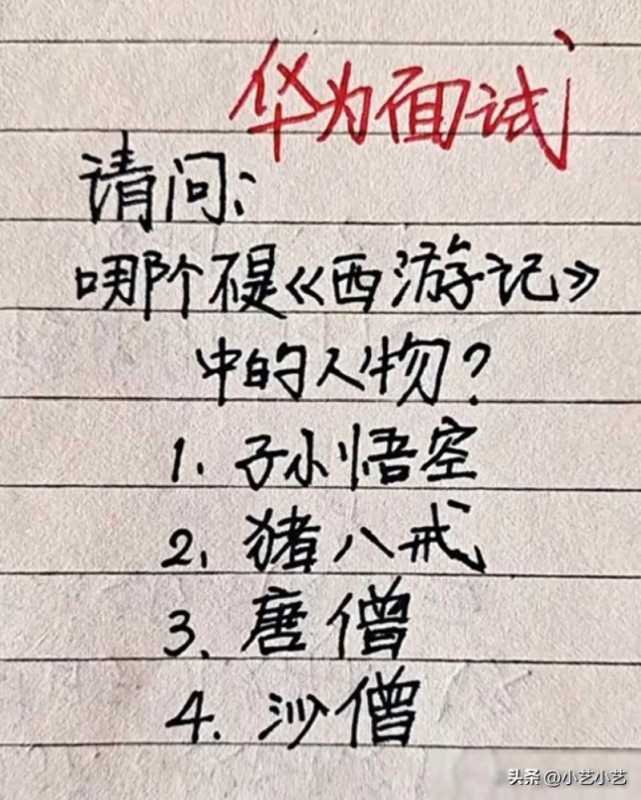 华为面试
请问:
哪个不是《西游记》
中的人物?
1. 孙悟空
2. 猪八戒
3. 唐僧
4. 沙僧
头条 @小艺小艺